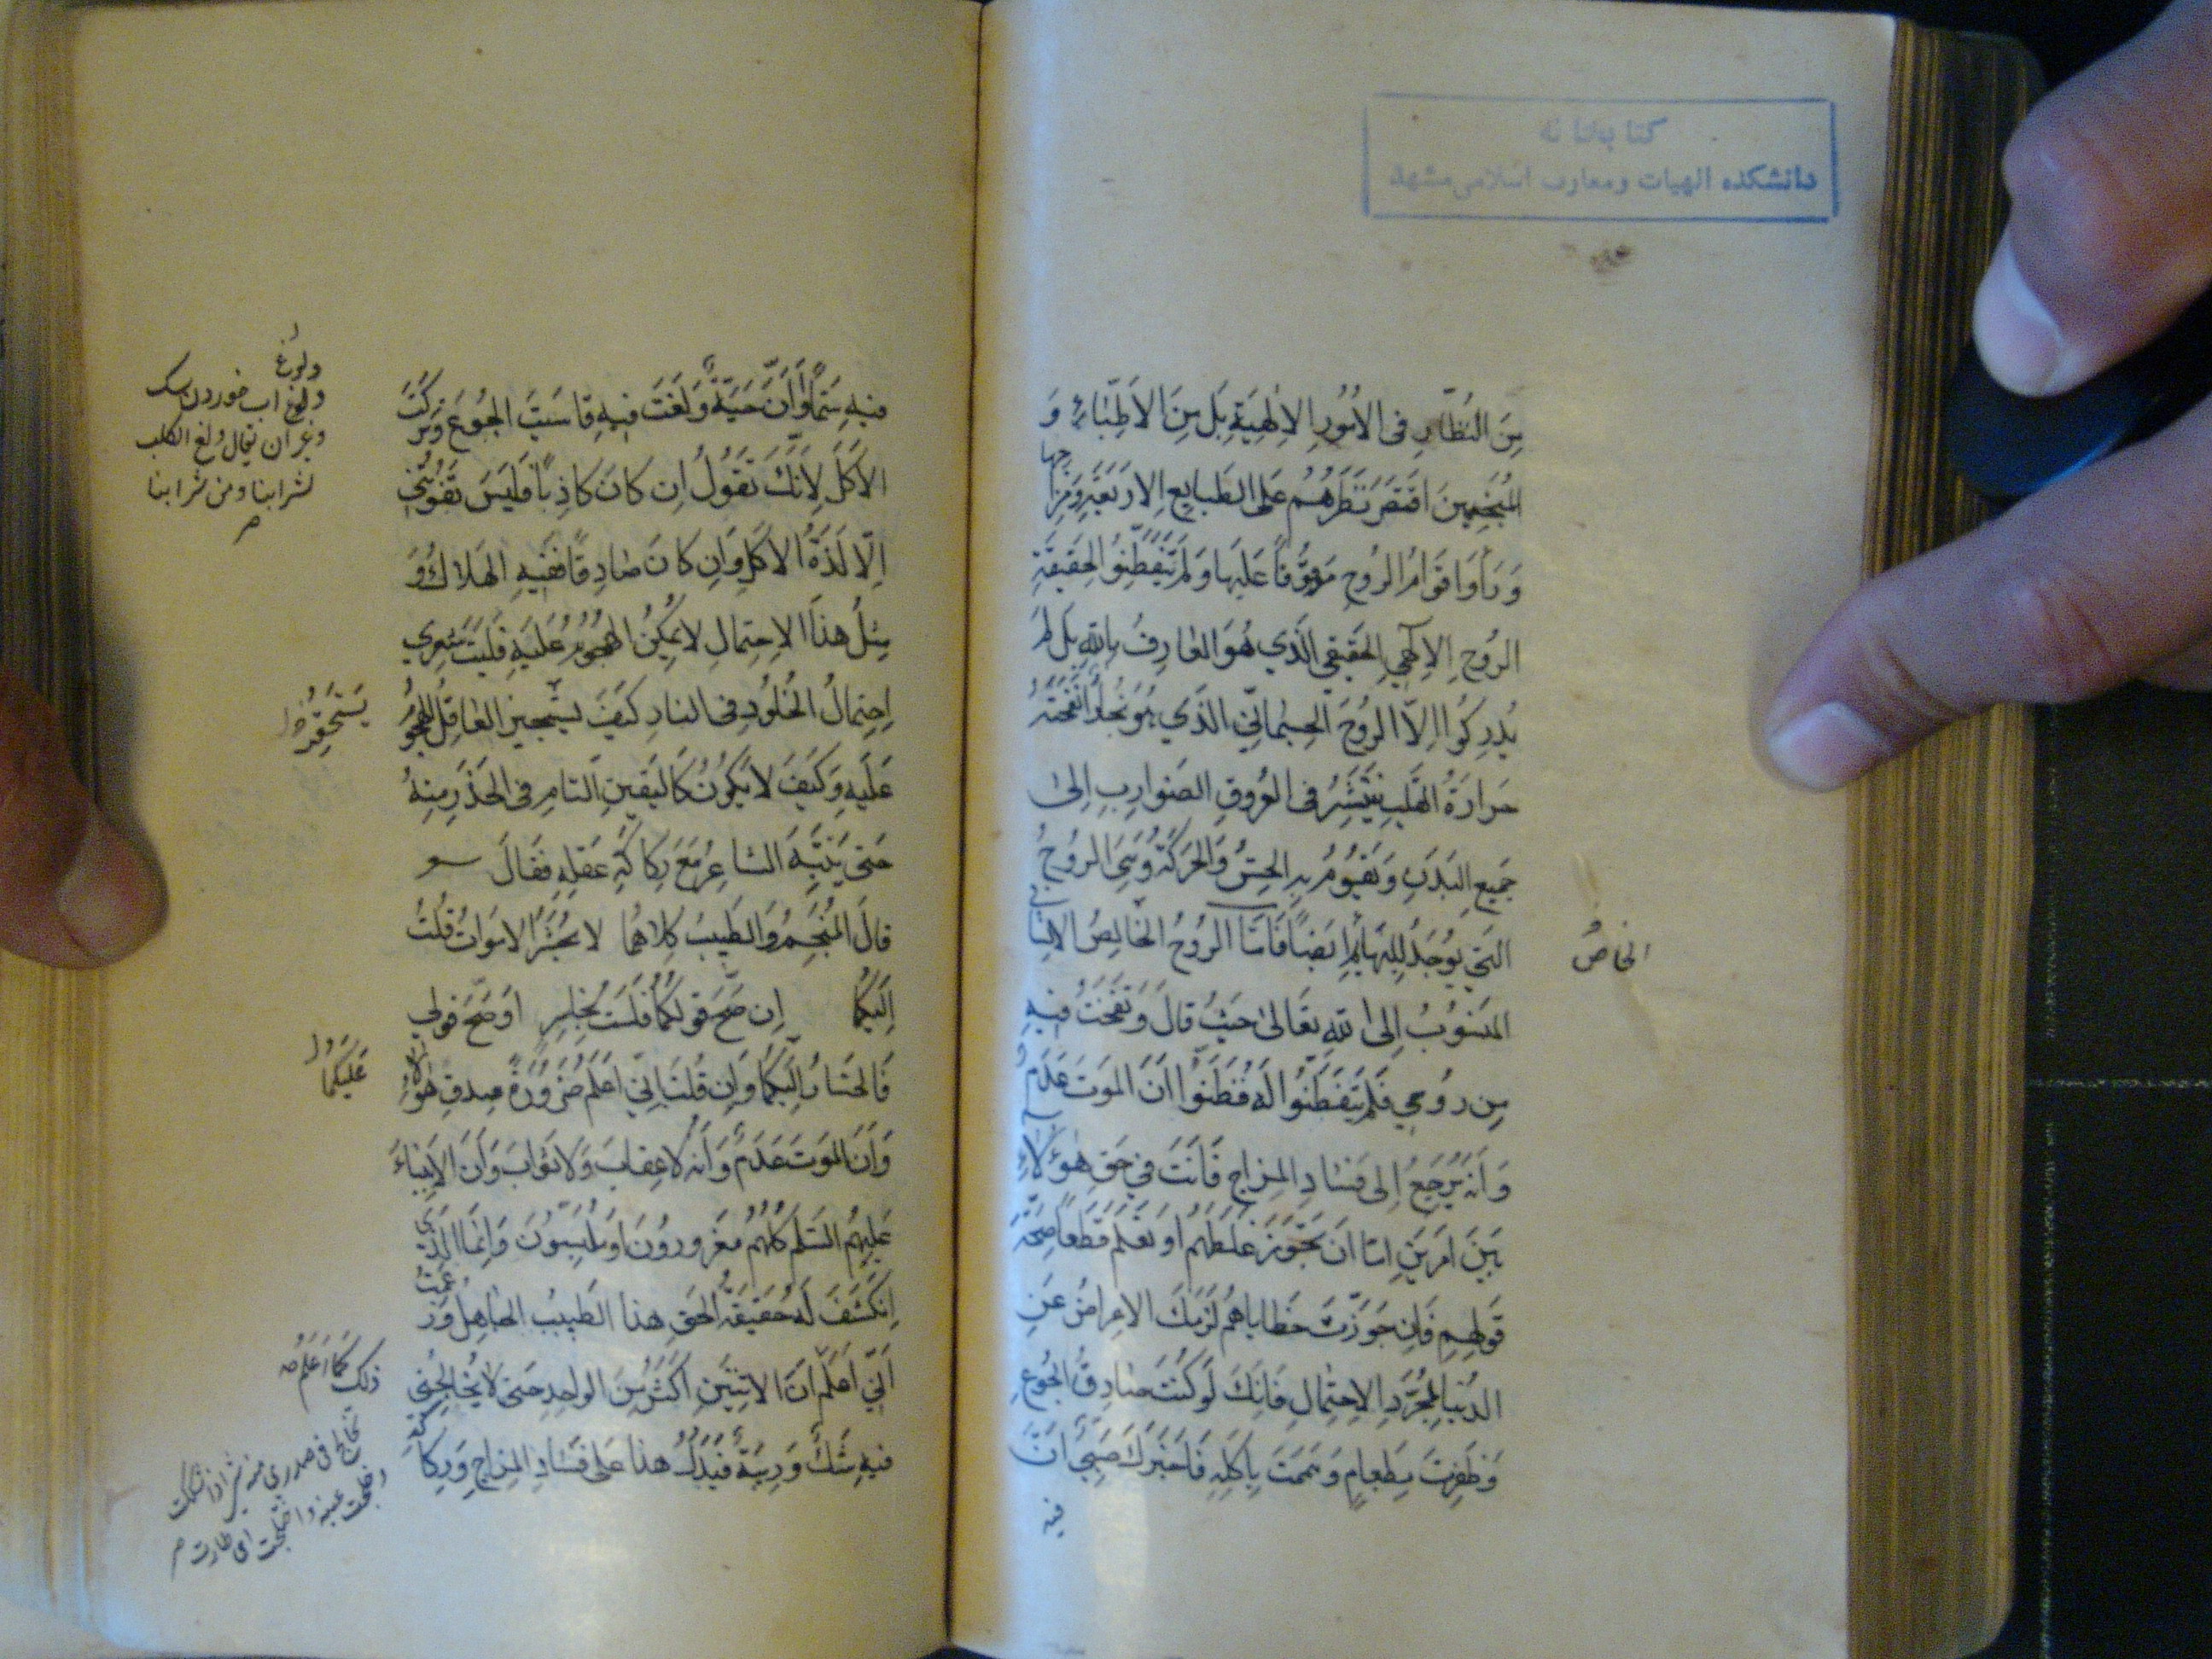 كتابخانه
دانشكده الهيات ومعارف اسلامى مشهد
مِنَ النُظّارِ فى الاُمُورِ الاِلٰهِيَةِ بَل مِنَ الاَطِبّاءِ وَ
المُنَجِّمِينَ اقتَصَرَ نَظَرُهُم عَلى الطَبايِعِ الاربَعَةِ وَمِزاجها
وَرَأَوا قَوامَ الرُوحِ مَوقُوفًا عَلَيها وَلَم يَتَفَطَّنُوا لِحَقيقَةِ
الرُوحِ الاِلٰهِيِ الحَقِيقىِ الَّذي هُوَ العارِفُ بِاللهِ بَل لَم
يُدرِكُوا اِلاّ الرُوحَ الجِسمانِىَّ الذَّي هُوَ بُخارٌ انضَجَتهُ
حَرارَةُ القَلبِ يَنتَشِرُ فى العُرُوقِ الضَوارِبِ اِلىٰ
جَميعِ البَدَنِ وَيَقُومُ بِهِ الحِسُّ وَالحَرَكَةُ وَهِىَ الروُحُ
التى يوُجَدُ لِلبَهائِمِ ايَضًا فَاَمّا الروُحُ الخالِصُ الاِنسانى
الخاصُ
المَنسُوبُ اِلى اللهِ تَعالىٰ حَيثُ قالَ وَنَفَختُ فيهِ
مِن رُوحي فَلَم يَتَفَطَّنُوا لَه فَظَنُّوا اَنَّ المَوتَ عَدَمٌ
وَاَنه يَرجِعُ اِلى فَسادِ المِزاجِ فَاَنتَ في حَقِ هٰؤلاءِ
بَينَ اَمرَينِ اِمّا اَن تُجَوِّزَ غَلَطَهُم اَو تَعلَمَ قَطعًا صِحَّةَ
قَولِهِم فَاِن جَوَّزتَ خَطاياهُم لَزِمَكَ الاِعراضُ عَنِ
الدُنيا بِمُجَرَّدِ الاِحتِمالِ فَاِنَكَ لَو كُنتَ صادِقَ الجُوعِ
وَظَفِرتَ بِطَعامٍ وَهَمَمتَ بِاَكلِهِ فَاَخبَرَكَ صَبِىٌّ اَنَّ
فيه
فيهِ سَمًّا وَاَنَّ حَيَّةً وَلَغَت فيهِ قاسَيتَ الجُوعَ وَتَرَكتَ
الاَكلَ لِاَنَّكَ تَقُولُ اِن كانَ كاذِبًا فَلَيسَ تَفُوتُنى
اِلّا لَذَّةُ الاَكلِ وَاِن كانَ صادِقًا فَفيهِ الهَلاكُ وَ
مِثلُ هذا الاِحتِمالِ لا يُمكِنُ الهُجُومُ عَلَيهِ فَلَيتَ شِعري
اِحتِمالُ الخُلُودِ فى النارِ كَيفَ يستجيز العاقِلُ الهُجُومَ
عَلَيهِ وَكَيفَ لا يَكُونُ كَاليَقينِ التامِ فى الحَذَرِ مِنهُ
حَتى يَنتَبِهَ الشاعِرُ مَعَ رِكاكَةِ عَقلِهِ فَقالَ
قالَ المُنَجِّمُ وَالطَبيبُ كِلاهُما لا يحُشَرُ الاموات قُلتُ
اِلَيكُما اِن صَحَّ قَولُكُما فَلَستُ بِخاسِرٍ اَو صَحَّ قَولي
فَالخَسارُ اِلَيكُما وَاِن قُلتَ اِنّي اَعلَمُ ضَرُورَةً صِدقَ هٰؤلاءِ
وَاَنَّ المَوتَ عَدَمٌ وَاَنَّه لا عِقابَ وَلا ثَوابَ وَاَنَّ الاَنبِياءَ
عَلَيهِمُ السَلم كُلُّهُم مَغرُورُونَ اَو مُلَبِّسُونَ وَاِنَّما الَّذي
اِنكَشَفَ لَهُ حَقيقَةُ الحَقِ هذا الطَبيبُ الجاهِلُ وَزَعَمتَ
اَنّي اَعلَمُ اَنَّ الاِثنَينِ اَكثَرُ مِنَ الواحِدِ حَتى لا يُخالِجُنى
فيهِ شَكٌّ وَرِيبَةٌ فَيَدُلُّ هذا عَلى فَسادِ المِزاجِ وَرِكاكَةِ
ولوُغ
ولوغ اب خوردن سك
ان يقال ولغ الكلب
بشرابنا ومن شرابنا
يَستَحقِرُ
عَلَيكُما
ذلك كَما اَعلَمُ
فى صدرى منه
عينه واختلجت اى طارت